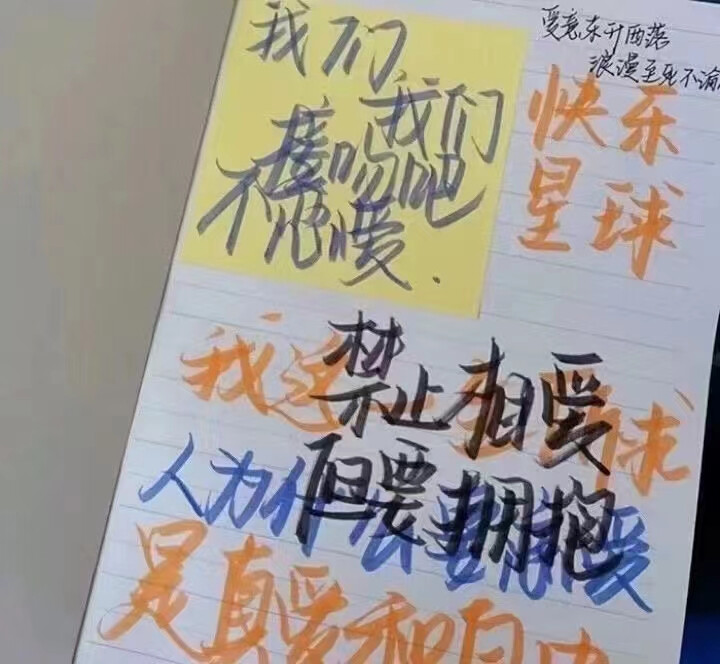 我们
我们
接吻吧
不爱.
爱意东升西落
浪漫至死不渝
快乐
星球
我这所求
禁止相爱
但要拥抱
人为什么要爱
是真爱和自由